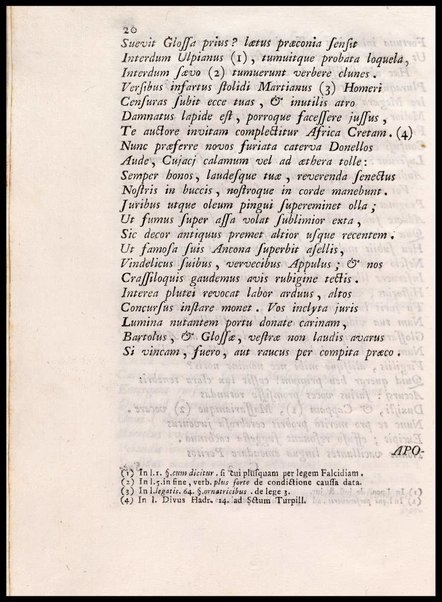 20
Suevit Glossa prius? lætus præconia sensit
Interdum Ulpianus (1), tumuitque probata loquela,
Interdum sævo (2) tumuerunt verbere clunes.
Versibus infartus stolidi Martianus (3) Homeri
Censuras subit ecce tuas, & inutilis atro
Damnatus lapide est, porroque facessere jussus,
Te auctore invitam complectitur Africa Cretam. (4)
Nunc præferre novos furiata caterva Donellos
Aude, Cujacj calamum vel ad æthera tolle:
Semper honos, laudesque tuæ, reverenda senectus
Nostris in buccis, nostroque in corde manebunt.
Juribus utque oleum pingui supereminet olla;
Ut fumus super assa volat sublimior exta,
Sic decor antiquus premet altior usque recentem.
Ut famosa suis Ancona superbit asellis,
Vindelicus suibus, vervecibus Appulus; & nos
Crassiloquis gaudemus avis rubigine tectis.
Interea plutei revocat labor arduus, altos
Concursus instare monet. Vos inclyta juris
Lumina nutantem portu donate carinam,
Bartolus, & Glossæ, vestræ non laudis avarus
Si vincam, fuero, aut raucus per compita præco.
APO-
(1) In l.1. §. cum dicitur. si cui plusquam per legem Falcidiam.
(2) In l.5. in fine, verb. plus forte de condictione caussa data.
(3) In l. legatis. 64. §. ornatricibus. de lege 3.
(4) In l. Divus Hadr. 14. ad Sctum Turpill.